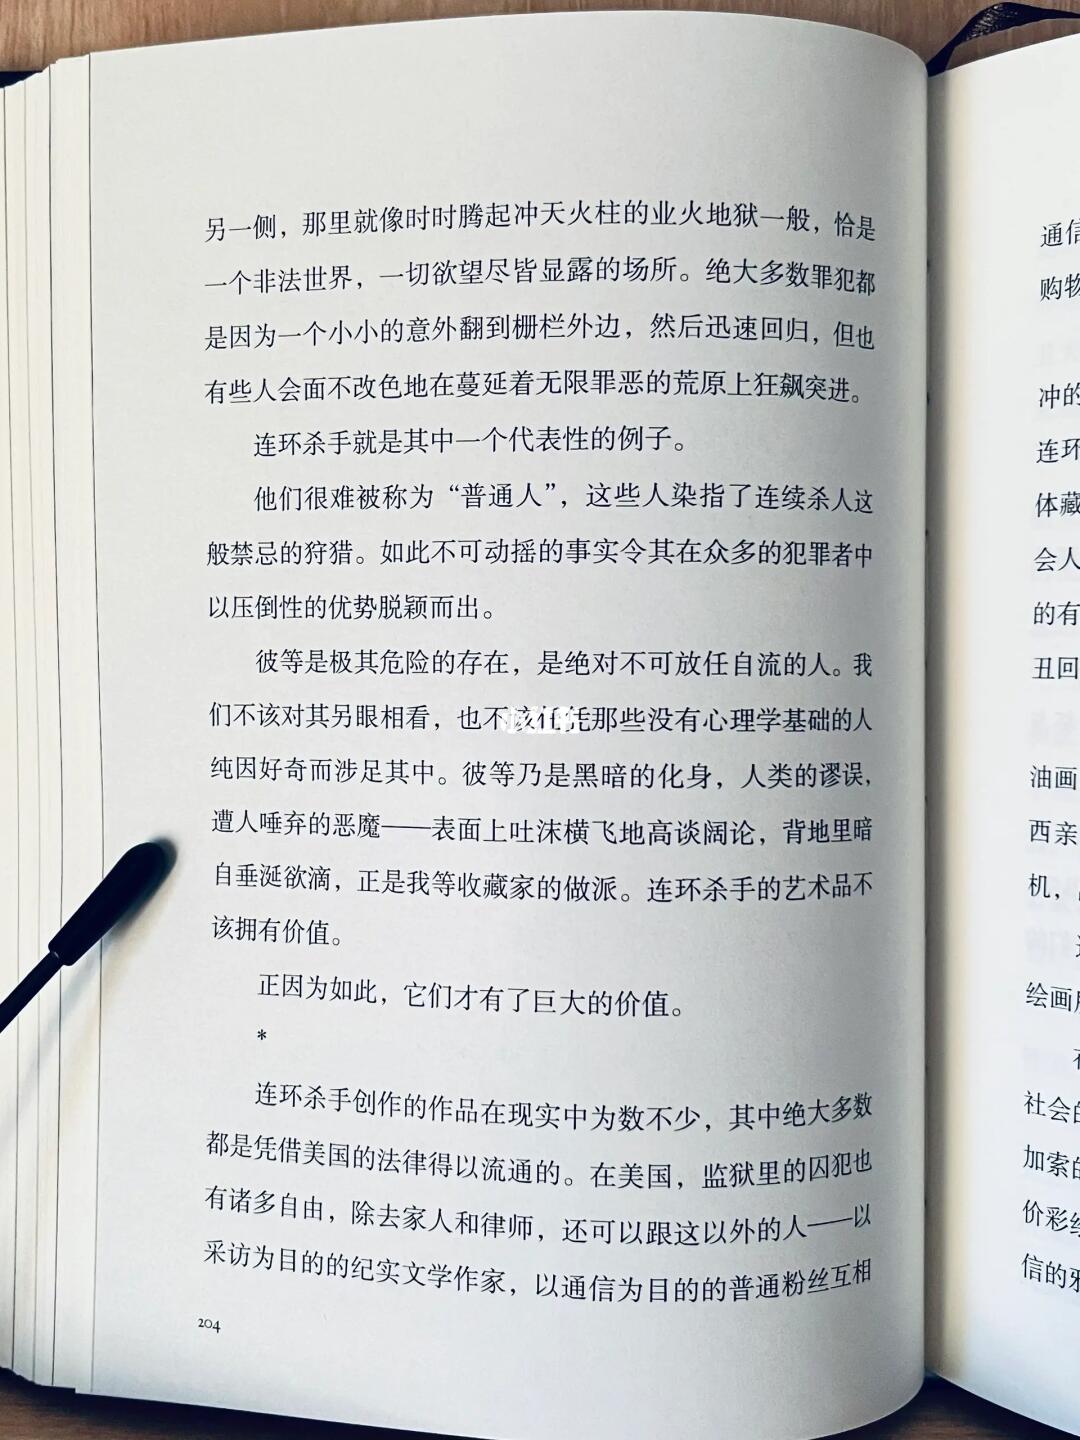 另一侧，那里就像时时腾起冲天火柱的业火地狱一般，恰是
一个非法世界，一切欲望尽皆显露的场所。绝大多数罪犯都
是因为一个小小的意外翻到栅栏外边，然后迅速回归，但也
有些人会面不改色地在蔓延着无限罪恶的荒原上狂飙突进。
连环杀手就是其中一个代表性的例子。
他们很难被称为“普通人”，这些人染指了连续杀人这
般禁忌的狩猎。如此不可动摇的事实令其在众多的犯罪者中
以压倒性的优势脱颖而出。
彼等是极其危险的存在，是绝对不可放任自流的人。我
们不该对其另眼相看，也不该任凭那些没有心理学基础的人
纯因好奇而涉足其中。彼等乃是黑暗的化身，人类的谬误，
遭人唾弃的恶魔——表面上吐沫横飞地高谈阔论，背地里暗
自垂涎欲滴，正是我等收藏家的做派。连环杀手的艺术品不
该拥有价值。
正因为如此，它们才有了巨大的价值。
*
连环杀手创作的作品在现实中为数不少，其中绝大多数
都是凭借美国的法律得以流通的。在美国，监狱里的囚犯也
有诸多自由，除去家人和律师，还可以跟这以外的人——以
采访为目的的纪实文学作家，以通信为目的的普通粉丝互相
204
通信
购物
冲的
连环
体藏
会人
的有
丑回
油画
西亲
机，
绘画
社会的
加索的
价彩绘
信的邪